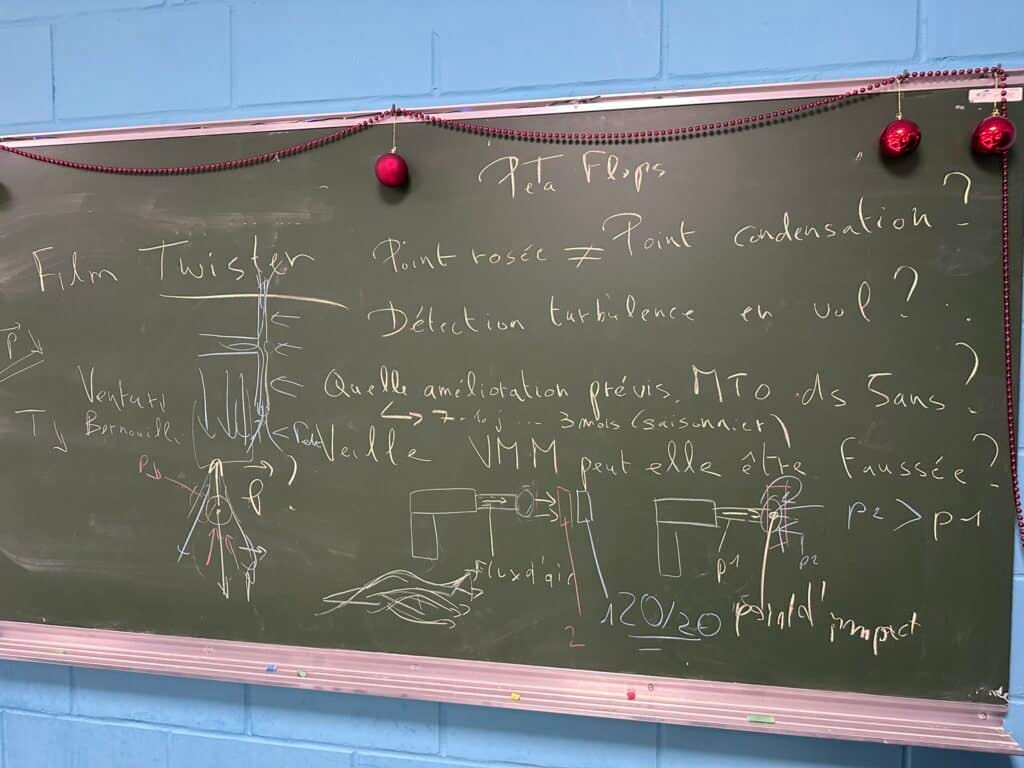 PéTa Flops
Film Twister
Point rosée ≠ Point condensation ?
Détection turbulence en vol ?
P
Quelle améliotation prévis. MTO ds 5ans ?
Venturi
Bernouilli
T
↔ 7-10j ... 3 mois (saisonnier)
Veille VMM peut elle être faussée ?
P
p2 > p1
Flux d'air
p1
p2
1 20/20
point d'impact
2